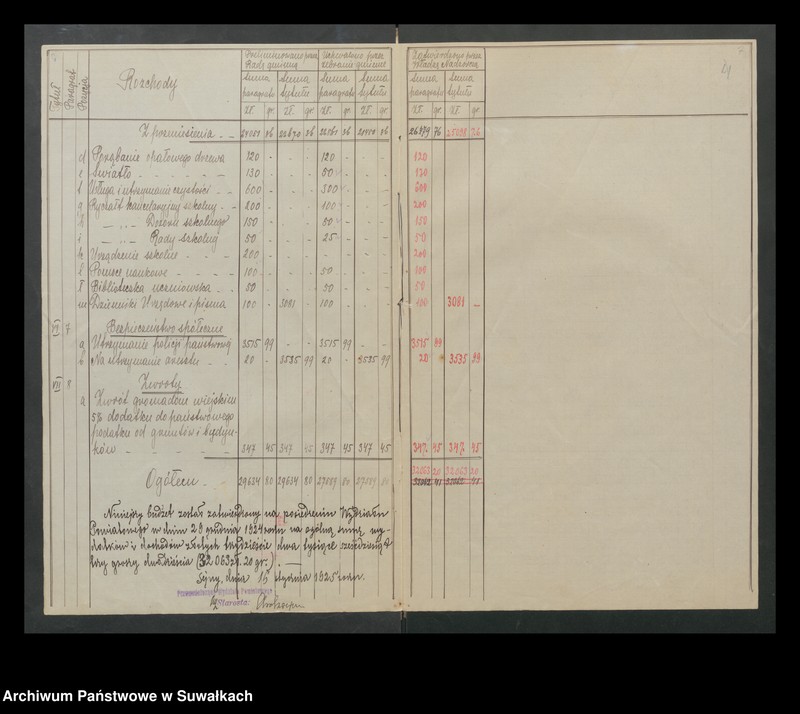 Rozchody
Tytuł Paragraf Pozycja
Preliminowano przez Radę gminną
Uchwalono przez zebranie gminne
Zatwierdzono przez Władzę Nadzorczą
Suma paragrafu Suma tytułu Suma paragrafu Suma tytułu Suma paragrafu Suma tytułu
zł. gr. zł. gr. zł. gr. zł. gr. zł. gr. zł. gr.
Z przeniesienia - - 26879 76 25098 76
d Porąbanie opałowego drzewa 120 - - - 120 - - - 120
e Światło - - - - - - 130 - - - 80 - - - 130
f Usługa i utrzymanie czystości - - 600 - - - 300 - - - 600
g Ryczałt kancelaryjny szkolny - - 200 - - - 100 - - - 200
h - „ - Dozoru szkolnego 150 - - - 80 - - - 150
i - „ - Rady szkolnej 50 - - - 25 - - - 50
k Urządzenie szkolne - - - 200 - - - 200
l Pomoce naukowe - - - - 100 - - - 50 - - - 100
ł Bibljoteczka uczniowska - - 50 - - - 50 - - - 50
m Dzienniki Urzędowe i pisma 100 - 3081 - 100 - - - 100 3081 -
VI 7 Bezpieczeństwo społeczne
a Utrzymanie policji państwowej 3515 99 - - 3515 99 - - 3515 99
b Na utrzymanie aresztu - - 20 - 3535 99 20 - 3535 99 20 3535 99
VII 8 Zwroty
a Zwrot gromadom wiejskim
5% dodatku do państwowego
podatku od gruntów i budyn-
ków - - - - - 347 45 347 45 347 45 347 45 347 45 347 45
32063 20 32063 20
Ogółem - - 29634 80 29634 80
Niniejszy budżet został zatwierdzony na posiedzeniu Wydziału
Powiatowego w dniu 29 grudnia 1924 roku na ogólną sumę wy-
datków i dochodów złotych trzydzieście dwa tysiące sześćdziesiąt
trzy groszy dwadzieścia (32 063 zł. 20 gr.). —
Sejny, dnia 15 stycznia 1925 roku.
Przewodniczący Wydziału Powiatowego
Starosta:
Archiwum Państwowe w Suwałkach